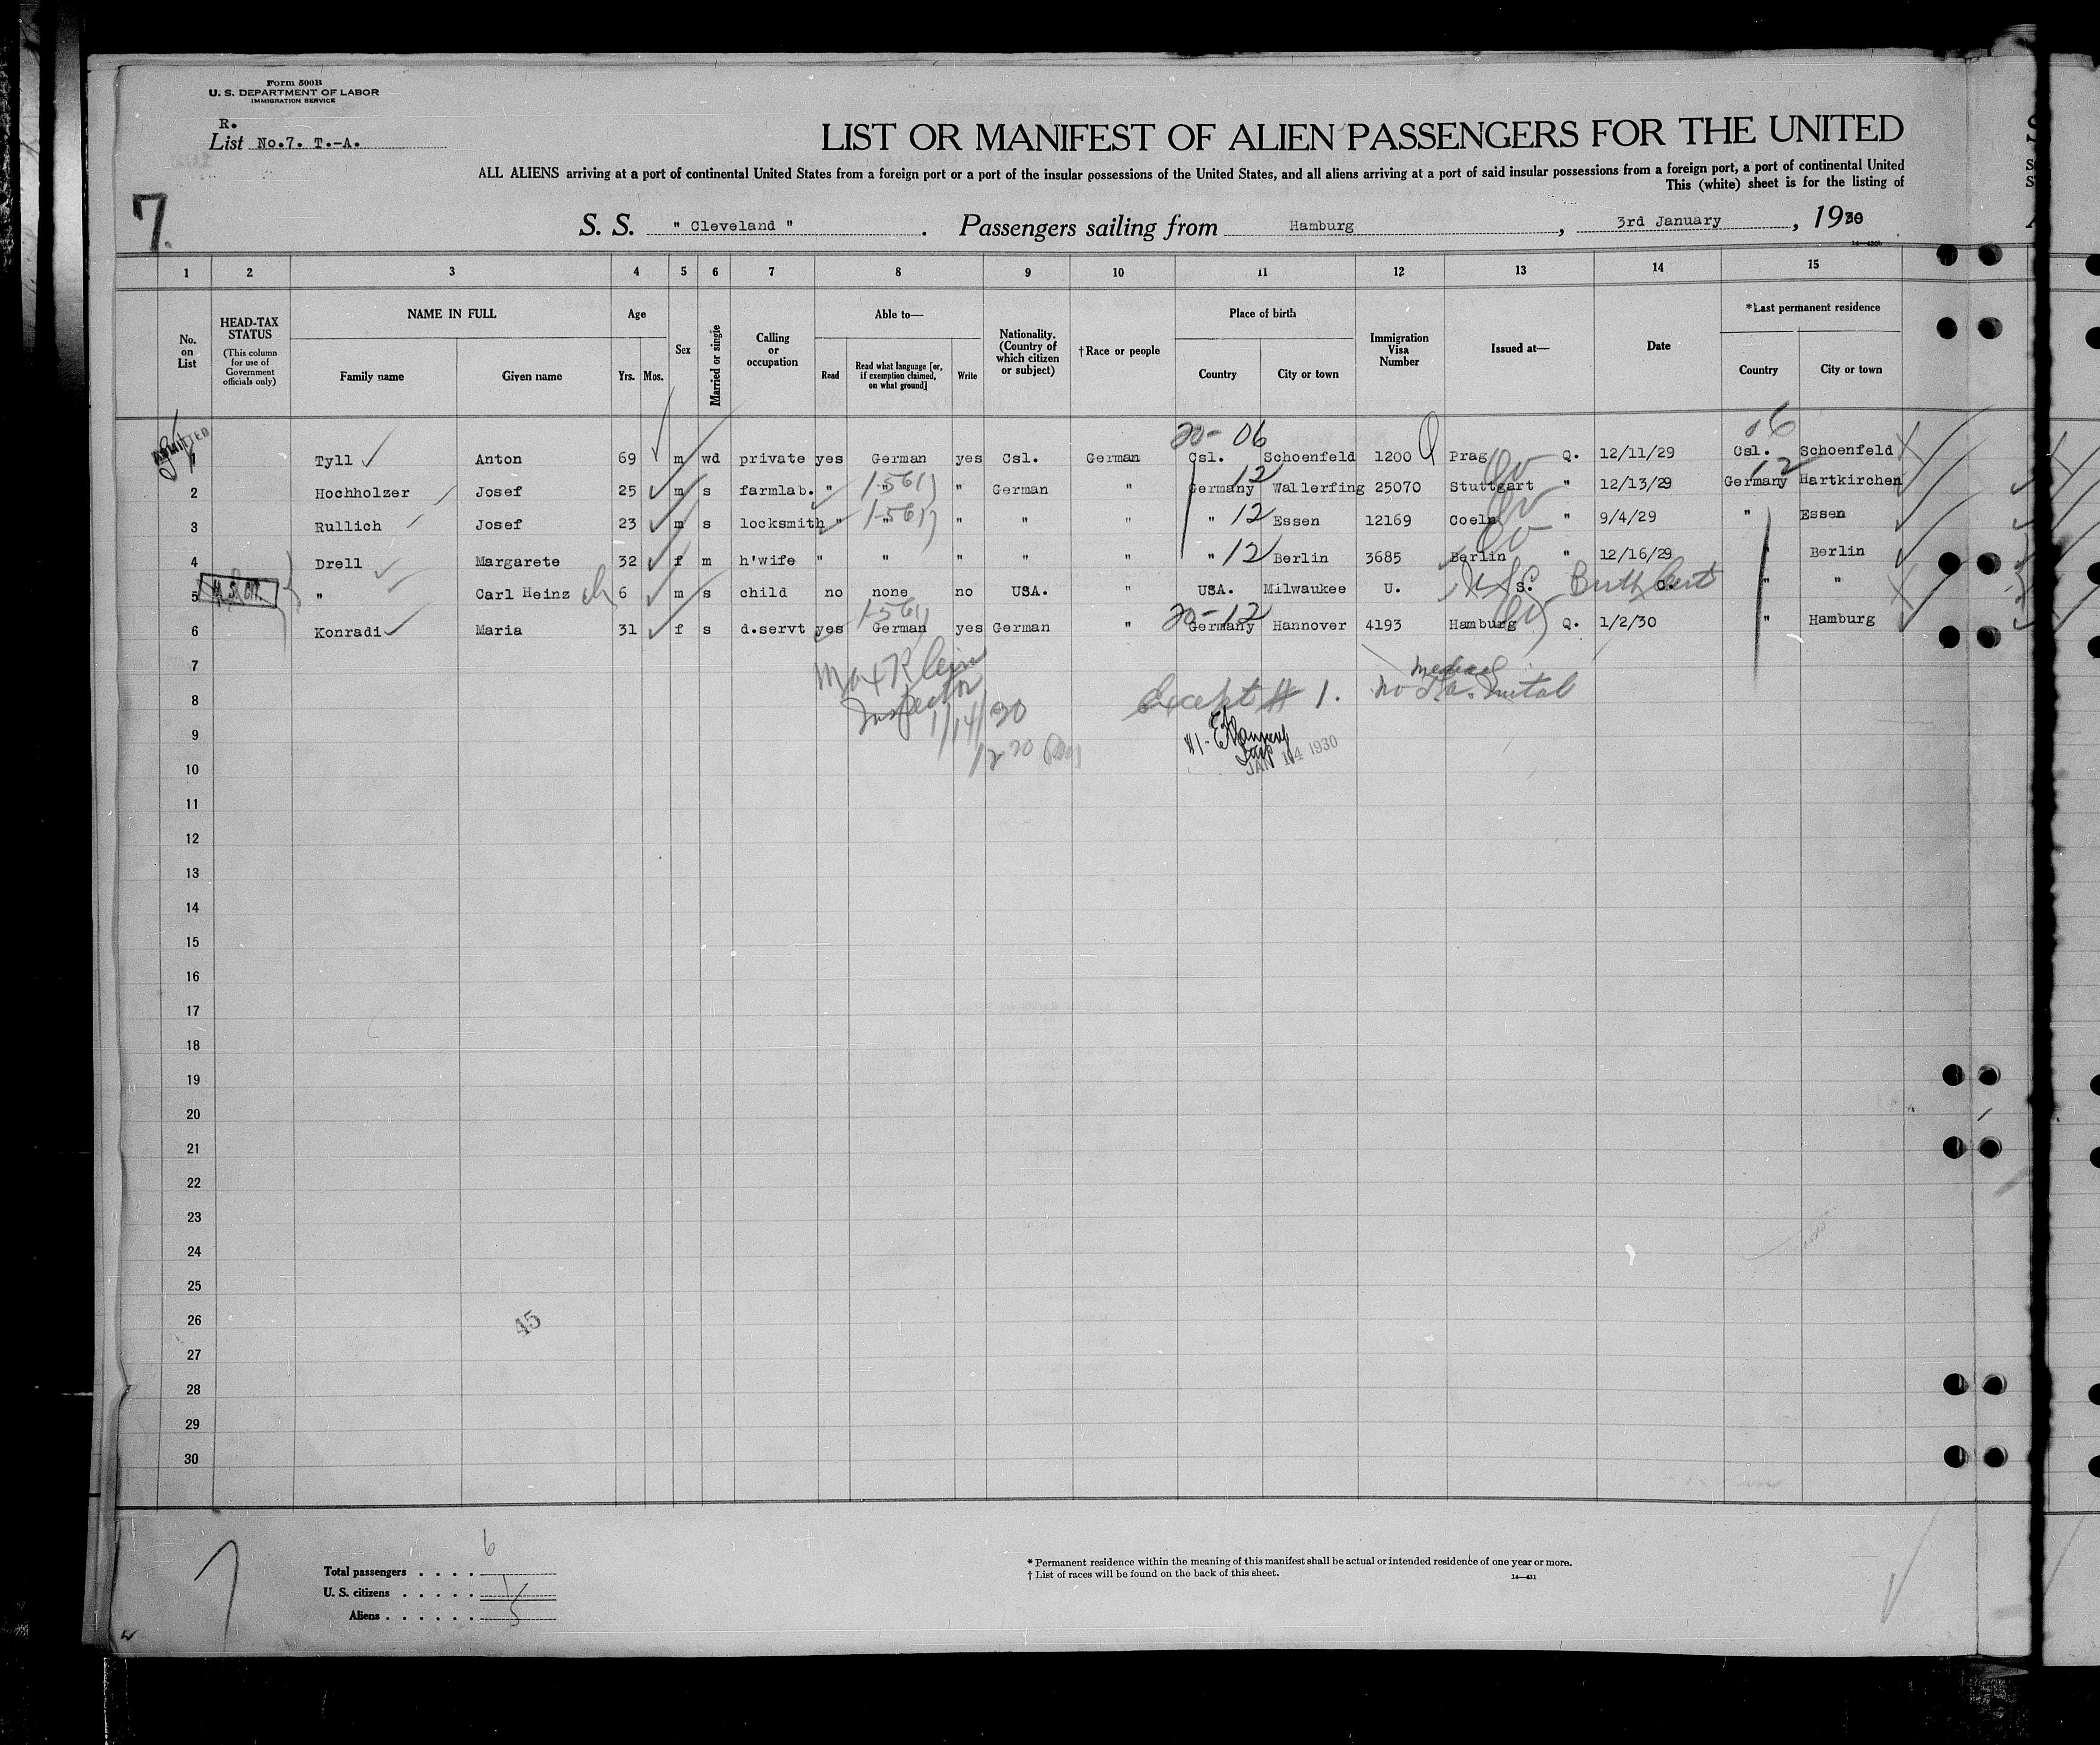 Form 500B
U. S. DEPARTMENT OF LABOR
IMMIGRATION SERVICE
R.
List No.7. T.-A.
7.
LIST OR MANIFEST OF ALIEN PASSENGERS FOR THE UNITED
ALL ALIENS arriving at a port of continental United States from a foreign port or a port of the insular possessions of the United States, and all aliens arriving at a port of said insular possessions from a foreign port, a port of continental United
This (white) sheet is for the listing of
S. S. " Cleveland " . Passengers sailing from Hamburg , 3rd January , 1930
1 2 3 4 5 6 7 8 9 10 11 12 13 14 15
No. on List
HEAD-TAX STATUS
(This column for use of Government officials only)
NAME IN FULL
Family name Given name
Age
Yrs. Mos.
Sex
Married or single
Calling or occupation
Able to—
Read
Read what language [or, if exemption claimed, on what ground]
Write
Nationality. (Country of which citizen or subject)
†Race or people
Place of birth
Country City or town
Immigration Visa Number
Issued at—
Date
*Last permanent residence
Country City or town
ADMITTED
20- 06 06
1 Tyll Anton 69 m wd private yes German yes Csl. German Csl. Schoenfeld 1200 Prag Q. 12/11/29 Csl. Schoenfeld
12 12
2 Hochholzer Josef 25 m s farmlab. " " " German " Germany Wallerfing 25070 Stuttgart " 12/13/29 Germany Hartkirchen
3 Rullich Josef 23 m s locksmith " " " " " " 12 Essen 12169 Coeln " 9/4/29 " Essen
4 Drell Margarete 32 f m h'wife " " " " " " 12 Berlin 3685 Berlin " 12/16/29 " Berlin
U.S. CIT.
5 " Carl Heinz 6 m s child no none no USA. " USA. Milwaukee U. S. C. " "
U.S. Birth Cert
20-12
6 Konradi Maria 31 f s d.servt yes German yes German " Germany Hannover 4193 Hamburg Q. 1/2/30 " Hamburg
7
Max Klein
Inspector
1/14/30
Except # 1.
medical
8
9
JAN 14 1930
10
11
12
13
14
15
16
17
18
19
20
21
22
23
24
25
26
45
27
28
29
30
7
Total passengers . . . . 6
U. S. citizens . . . . . 1
Aliens . . . . . . 5
* Permanent residence within the meaning of this manifest shall be actual or intended residence of one year or more.
† List of races will be found on the back of this sheet.
14—431